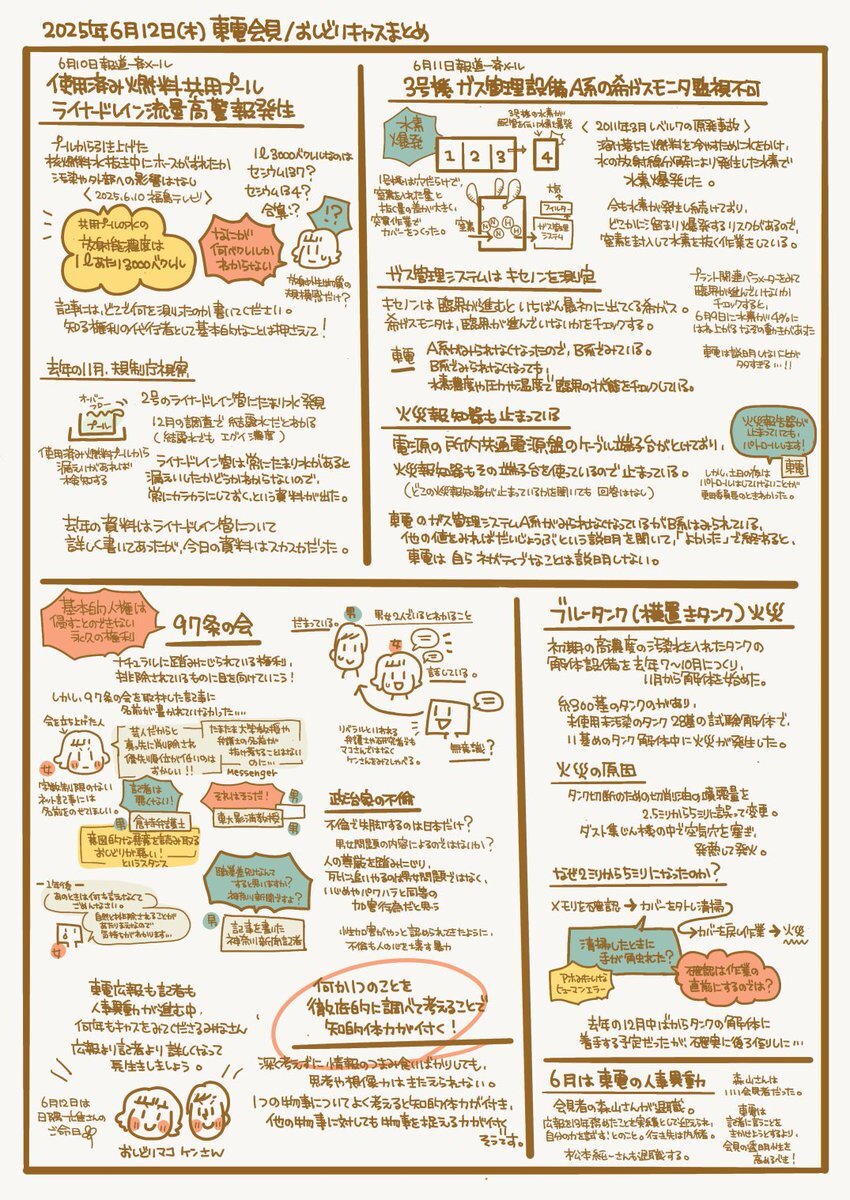 2025年6月12日(木) 東電会見/おしどりキャスまとめ
6月10日報道一斉メール
使用済み燃料共用プール
ライナードレイン流量高警報発生
プールから引き上げた
核燃料水抜き中にホースがずれたか
汚染や外部への影響はなし
〈2025.6.10 福島テレビ〉
1ℓ3000ベクレルなのは
セシウム137?
セシウム134?
合算!?
!?
共用プールの水の
放射能濃度は
1ℓあたり3000ベクレル
なにが
何ベクレルか
わからない
記事には、どこで何を測ったのか書いてください。
知る権利の代行者として基本的なことは押さえて!
去年の11月、規制庁視察
オーバー
フロー
プール
使用済み燃料プールから
漏えいがあれば
検知する
2号のライナードレイン管にたまり水発見
12月の調査で結露水だとわかる
(結露水でもエグイ濃度)
ライナードレイン管は常にたまり水があると
漏えいしたかどうかわからないので、
常にカラカラにしておく、という資料が出た。
去年の資料はライナードレイン管について
詳しく書いてあったが、今日の資料はスカスカだった。
6月11日報道一斉メール
3号機ガス管理設備A系の希ガスモニタ監視不可
水素
爆発
3号機の水素が
配管を伝い4号機も爆発
1 2 3 4
〈2011年3月 レベル7の原発事故〉
溶け落ちた燃料を冷やすために水をかけ、
水の放射線分解により発生した水素で
水素爆発した。
1号機は穴だらけで、
窒素を入れた量と
抜く量の差が大きく、
突貫作業で
カバーをつくった。
窒素
N N H H
大気
フィルター
ガス管理
システム
今も水素が発生し続けており、
どこかに溜まり爆発するリスクがあるので、
窒素を封入して水素を抜く作業をしている。
ガス管理システムはキセノンを測定
キセノンは臨界が進むといちばん最初に出てくる希ガス。
希ガスモニタは、臨界が進んでいないかをチェックする。
東電
A系がみられなくなったので、B系でみている。
B系でみられなくなっても、
水素濃度や圧力や温度で臨界の状態をチェックしている。
プラント関連パラメータをみて
臨界が進んでいないか
チェックすると、
6月9日に水素が0.4%に
はね上がるなぞの動きがあった
東電は説明しないことが
多すぎる…!!
火災報知器も止まっている
電源の所内共通電源盤のケーブル端子台がとけており、
火災報知器もその端子台を使っているので止まっている。
(どこの火災報知器が止まっているかを聞いても回答はなし)
火災報告器が
止まっていても、
パトロールします!
東電
しかし、土日の夜は
パトロールはしていないことが
東電会見のときわかった。
東電のガス管理システムA系がみられなくなっているがB系はみられている、
他の値をみればだいじょうぶという説明を聞いて、「よかった」で終わると、
東電は自らネガティブなことは説明しない。
基本的人権は
侵すことのできない
永久の権利
97条の会
ナチュラルに踏みにじられている権利、
排除されているものに目を向けていこう!
しかし、97条の会を取材した記事に
名前が書かれていなかった…
会を立ち上げた人
女
芸人だからと
真っ先に削り除され
優先順位が低いのは
おかしい!!
たまたま大学教授や
弁護士の名前が
抜け落ちることはない
のに…
Messenger
字数制限のない
ネット記事には
名前をのせてほしい。
記者は
悪くない!
男
倉持弁護士
それはそうだ!
男
男
意図的な悪意を読み取る
おしどりが悪い!
というスタンス
職業差別なんて
すると思いますか?
神奈川新聞ですよ?
男
記事を書いた
神奈川新聞記者
ー1年後ー
あのときは何も言えなくて
ごめんなさい。
自然と排除されることが
あたりまえなので
気持ちがわかります…
女
だまっている。
男
男女2人でいるとわかること
女
話している。
無意識?
リベラルといわれる
弁護士や研究者でも
マコさんではなく
ケンさんをみてしゃべる。
政治家の不倫
不倫で失脚するのは日本だけ?
男女問題の内容によるのではないか?
人の尊厳を踏みにじり、
死に追いやるのは男女問題ではなく、
いじめやパワハラと同等の
加害行為だと思う
性加害がやっと認められてきたように、
不倫も人の心を壊す暴力
東電広報も記者も
人事異動が進む中、
何年もキャスをみてくださるみなさん
広報より記者より詳しくなって
長生きしましょう。
6月12日は
おしどりマコ ケンさん
何か1つのことを
徹底的に調べて考えることで
知的体力が付く!
深く考えずに情報のつまみ食いばかりしても、
思考や想像力はきたえられない。
1つの物事についてよく考えると知的体力が付き、
他の物事に対しても物事を捉える力が付く
そうです。
ブルータンク(横置きタンク)火災
初期の高濃度の汚染水を入れたタンクの
解体設備を去年7~10月につくり、
11月から解体を始めた。
約300基のタンクのがあり、
未使用未汚染のタンク28基の試験解体で、
11基めのタンク解体中に火災が発生した。
火災の原因
タンク切断のための切削油の噴霧量を
2.5ミリから5ミリに誤って変更。
ダスト集じん機の中で空気穴を塞ぎ、
発熱して発火。
なぜ2ミリから5ミリになったのか?
×モリを不確認→カバーを外して清掃
→カバーを戻し作業→火災
清掃したときに
手が触れた?
アホみたいな
ヒューマンエラー
確認は作業の
直前にするのでは?
去年の12月中ばからタンクの解体に
着手する予定だったが、不確実に後ろ倒しに…
6月は東電の人事異動
会見者の森山さんが退職。
広報を13年務めたことを実績として迎えられ、
自分の力を試す!とのこと。行き先は内緒。
松本純一さんも退職する。
森山さんは
いい会見者だった。
東電は
記者に言うことを
きかせようとするより、
会見の透明性を
高めるべき!